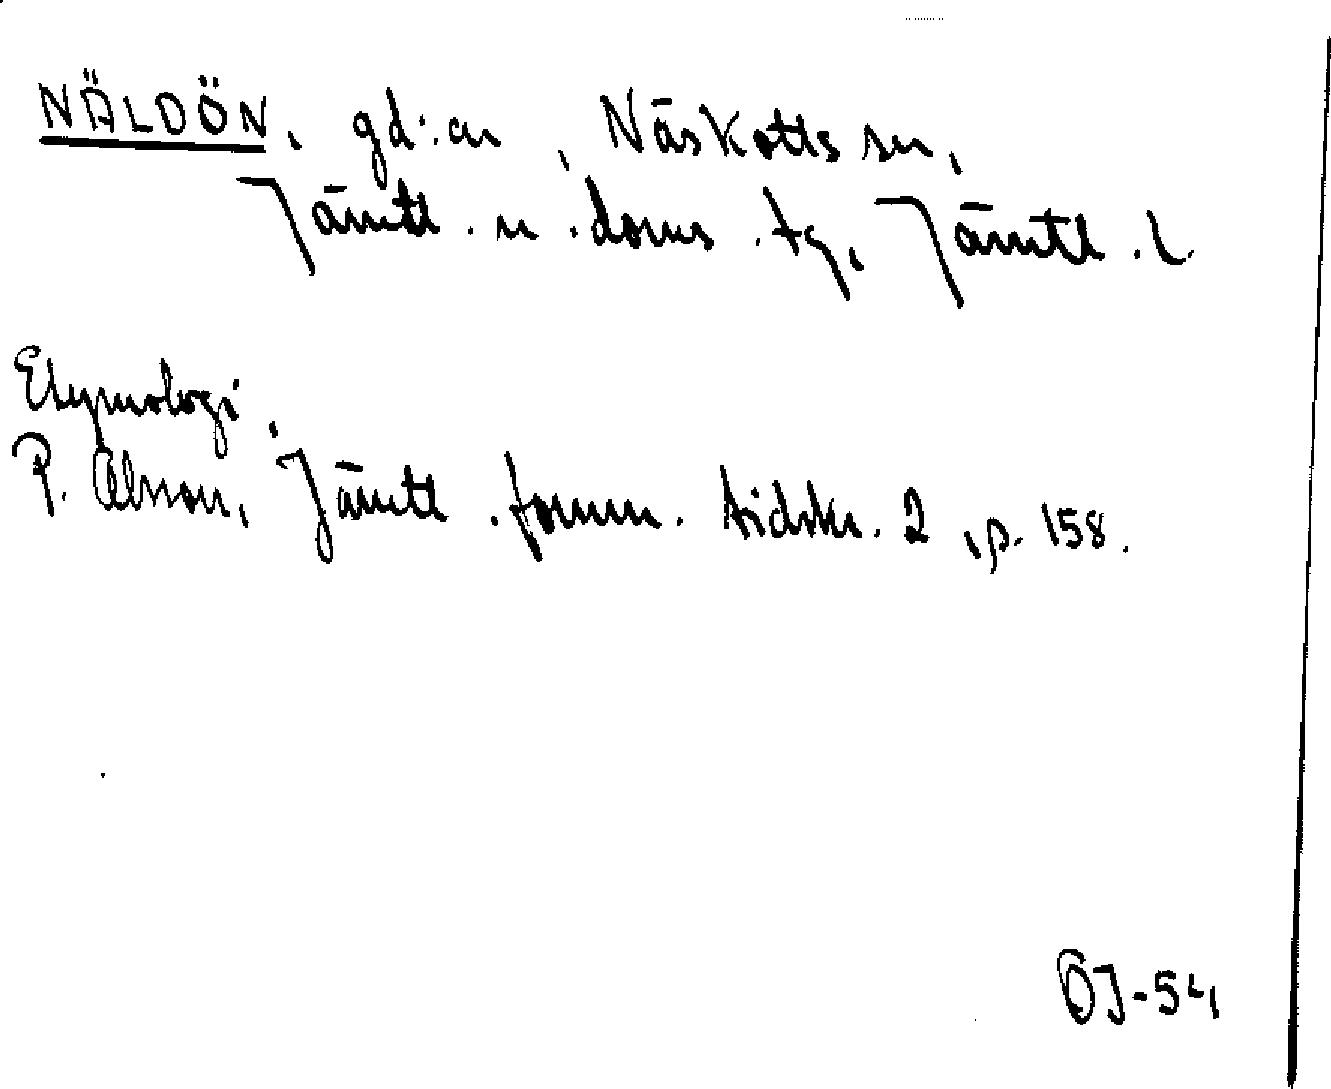 NÄLDÖN, gd:ar, Näskotts sn,
Jämtl. n. doms. tg, Jämtl. l.
Etymologi.
P. Olsson, Jämtl. fornm. tidskr. 2, p. 158.
ÖJ-54